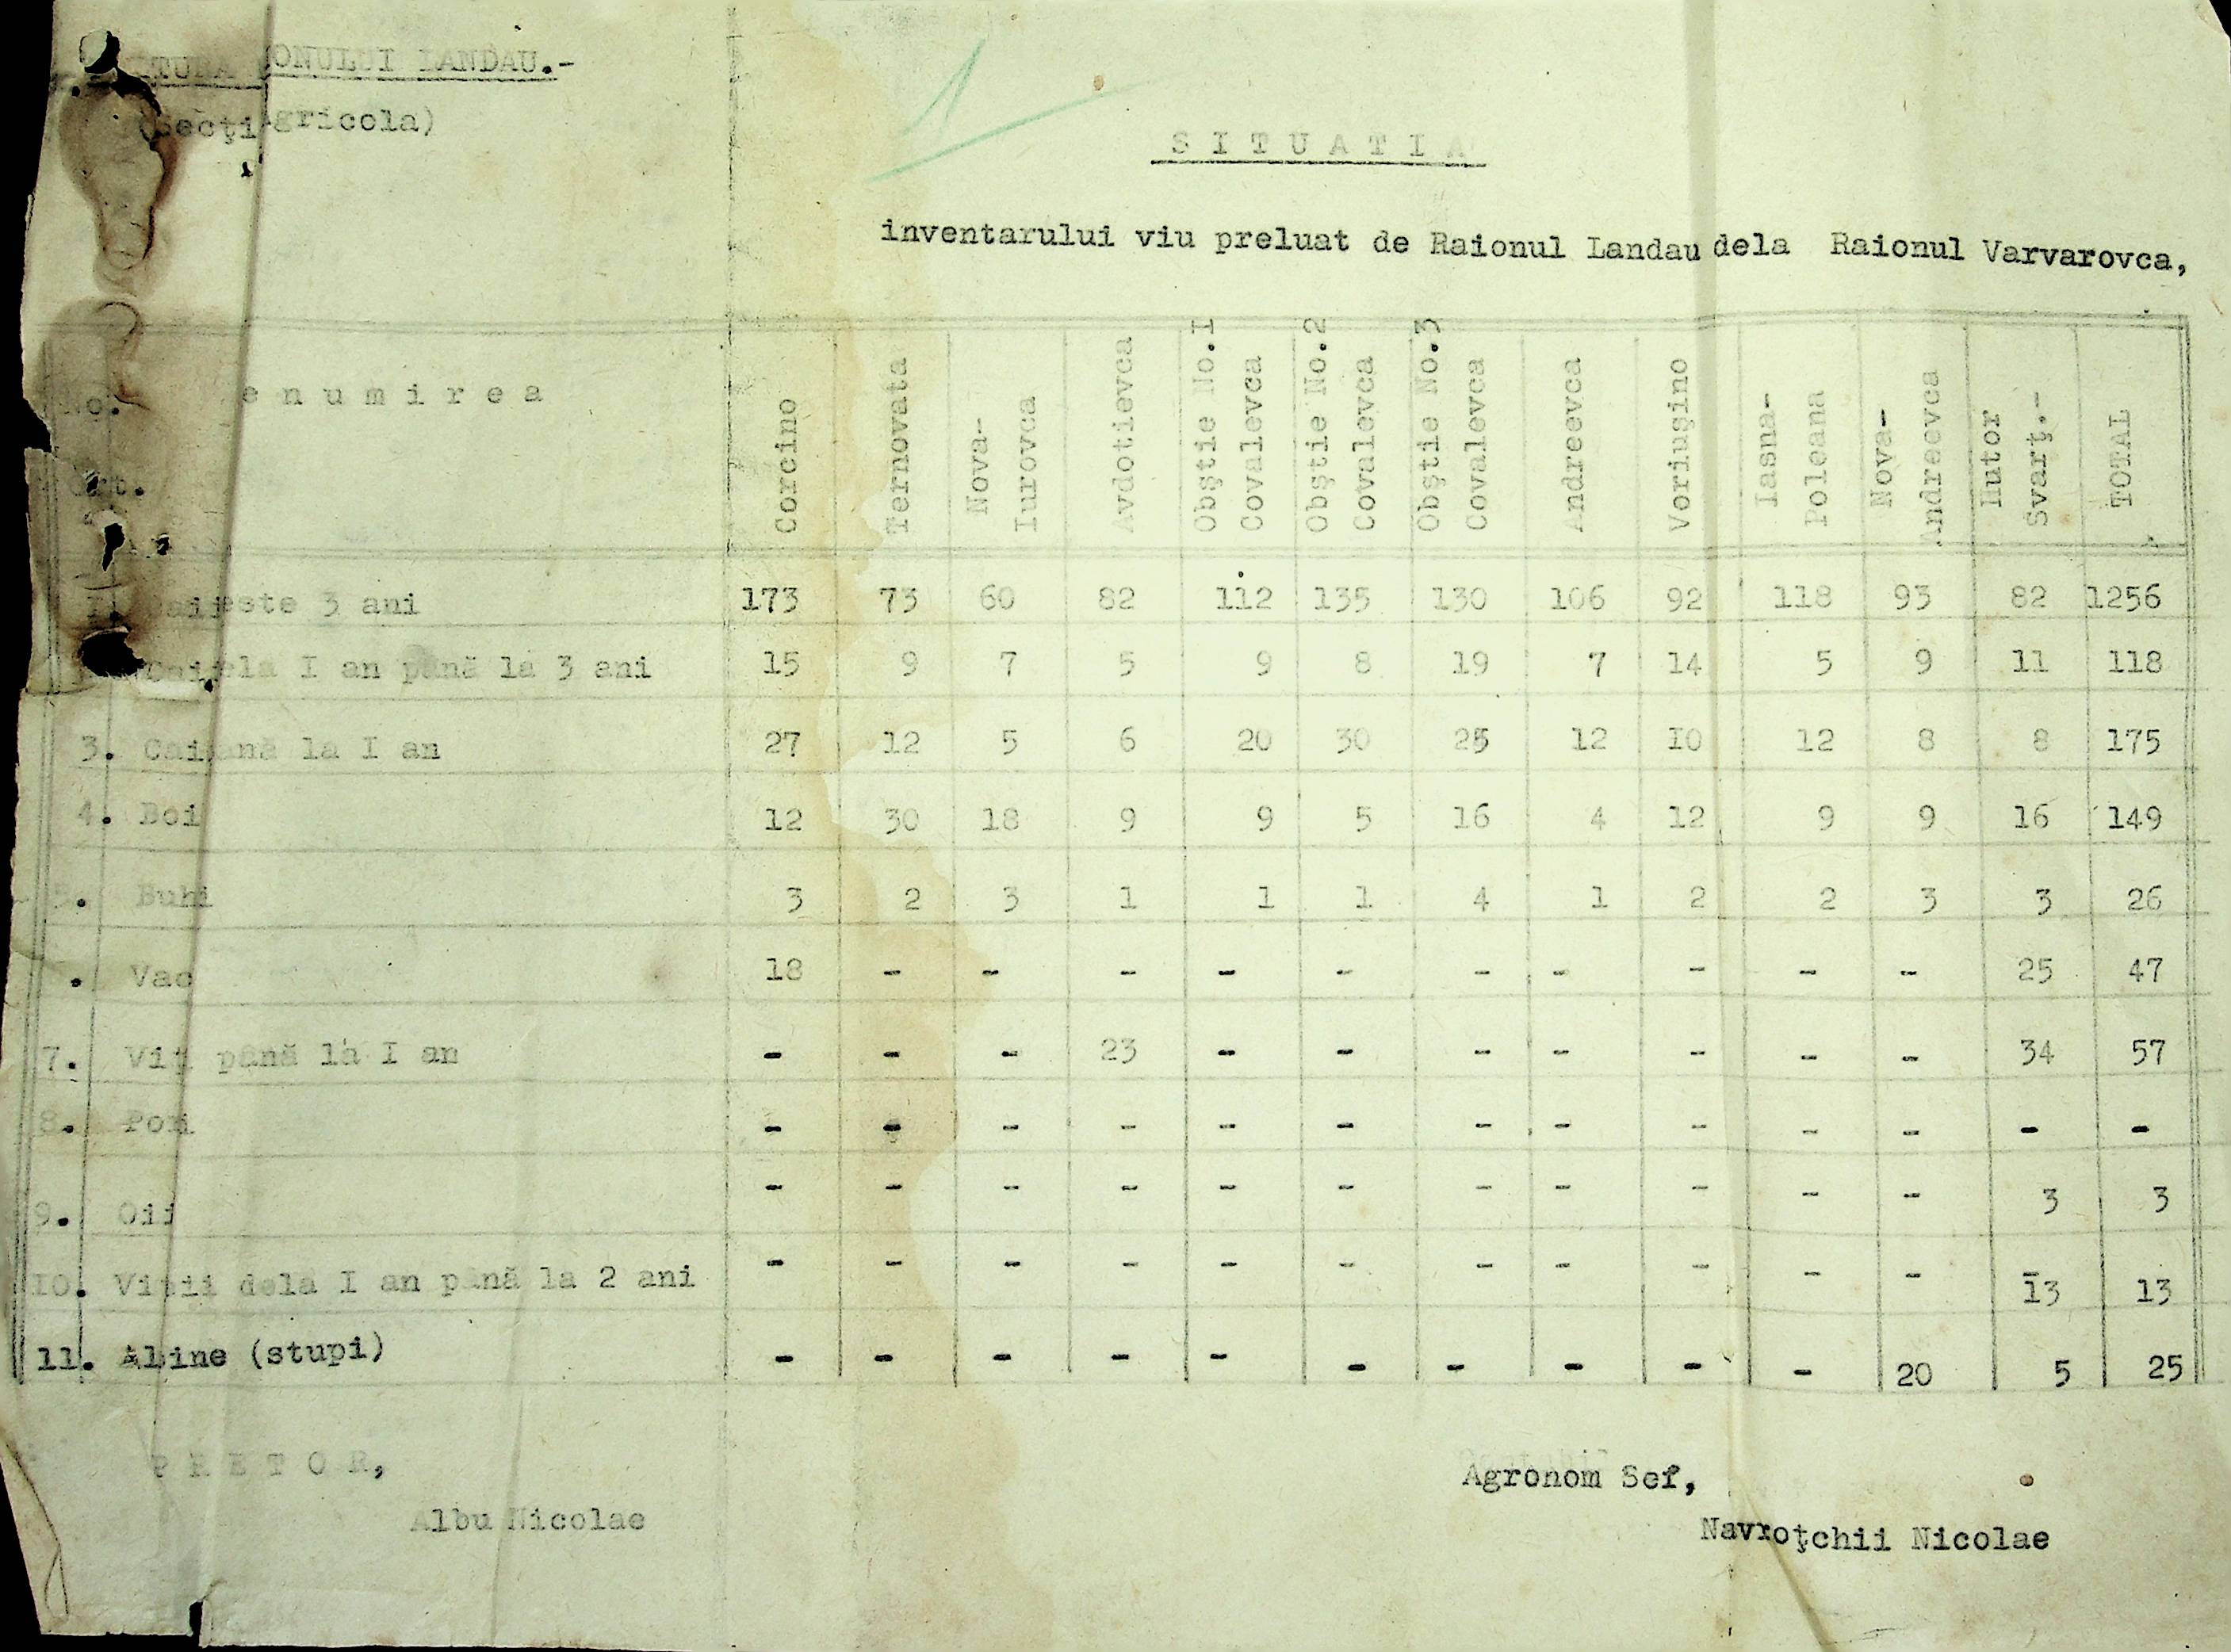 TURA ONULUI LANDAU.-
(Secţi Agricola)
SITUATIA
inventarului viu preluat de Raionul Landau dela Raionul Varvarovca,
No. enumirea Corcino Ternovata Nova-Iurovca Avdotievca Obştie No.I Covalevca Obştie No.2 Covalevca Obştie No.3 Covalevca Andreevca Voriuşino Iasna-Poleana Nova-Andreevca Hutor Svarţ.- TOTAL
1. Cai peste 3 ani 173 73 60 82 112 135 130 106 92 118 93 82 1256
Cai dela I an până la 3 ani 15 9 7 5 9 8 19 7 14 5 9 11 118
3. Cai până la I an 27 12 5 6 20 30 25 12 10 12 8 8 175
4. Boi 12 30 18 9 9 5 16 4 12 9 9 16 149
5. Buhi 3 2 3 1 1 1 4 1 2 2 3 3 26
. Vac 18 - - - - - - - - - - 25 47
7. Viţ până la I an - - - 23 - - - - - - - 34 57
8. - - - - - - - - - - - - -
9. Oii - - - - - - - - - - - 3 3
IO. Viţii dela I an până la 2 ani - - - - - - - - - - - 13 13
11. Albine (stupi) - - - - - - - - - - 20 5 25
PRETOR,
Albu Nicolae
Agronom Sef,
Navroţchii Nicolae